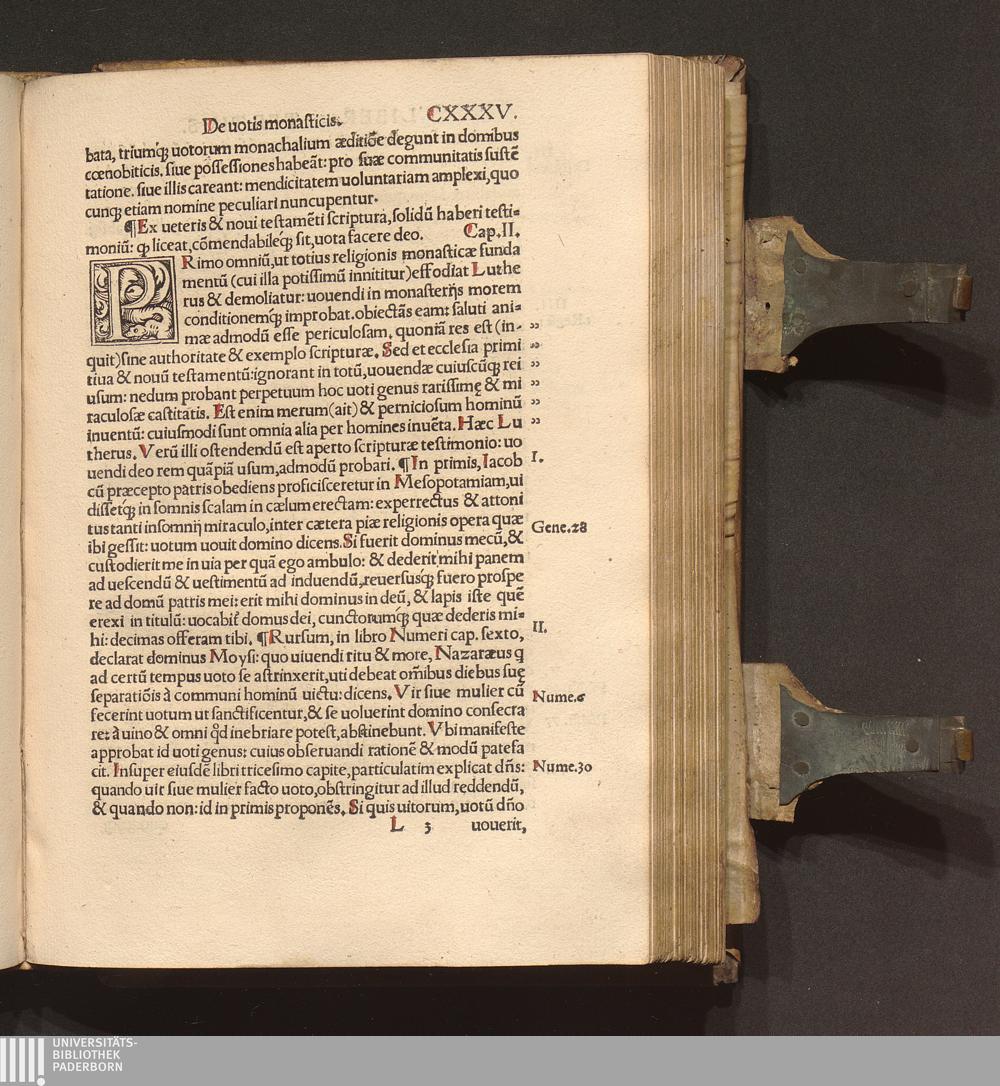 De uotis monasticis. CXXXV.
bata, triumq́; uotorum monachalium æditiõe degunt in domibus
cœnobiticis. siue possessiones habeãt: pro suæ communitatis sustē
tatione. siue illis careant: mendicitatem uoluntariam amplexi, quo
cunq; etiam nomine peculiari nuncupentur.
¶Ex ueteris & noui testamēti scriptura, solidū haberi testi=
moniū: ꝙ liceat, cōmendabileq́; sit, uota facere deo. Cap.II.
PRimo omniū, ut totius religionis monasticæ funda
mentū (cui illa potissimū innititur) effodiat Luthe
rus & demoliatur: uouendi in monasterijs morem
conditionemq́; improbat. obiectās eam: saluti ani=
mæ admodū esse periculosam, quoniā res est (in- „
quit) sine authoritate & exemplo scripturæ. Sed et ecclesia primi „
tiua & nouū testamentū: ignorant in totū, uouendæ cuiuscūq; rei „
usum: nedum probant perpetuum hoc uoti genus rarissimę & mi „
raculosæ castitatis. Est enim merum (ait) & perniciosum hominū „
inuentū: cuiusmodi sunt omnia alia per homines inuēta. Hæc Lu „
therus. Verū illi ostendendū est aperto scripturæ testimonio: uo
uendi deo rem quāpiā usum, admodū probari. ¶In primis, Iacob I.
cū præcepto patris obediens proficisceretur in Mesopotamiam, ui
dissetq́; in somnis scalam in cælum erectam: experrectus & attoni
tus tanti insomnij miraculo, inter cætera piæ religionis opera quæ
ibi gessit: uotum uouit domino dicens. Si fuerit dominus mecū, & Gene.28
custodierit me in uia per quā ego ambulo: & dederit mihi panem
ad uescendū & uestimentū ad induendū, reuersusq́; fuero prospe
re ad domū patris mei: erit mihi dominus in deū, & lapis iste quē
erexi in titulū: uocabit̃ domus dei, cunctorumq́; quæ dederis mi=
hi: decimas offeram tibi. ¶Rursum, in libro Numeri cap. sexto, II.
declarat dominus Moysi: quo uiuendi ritu & more, Nazaræus q
ad certū tempus uoto se astrinxerit, uti debeat om̄ibus diebus suę
separatiōis à communi hominū uictu: dicens. Vir siue mulier cū Nume.6
fecerint uotum ut sanctificentur, & se uoluerint domino consecra
re: à uino & omni qđ inebriare potest, abstinebunt. Vbi manifeste
approbat id uoti genus: cuius obseruandi rationē & modū patefa
cit. Insuper eiusdē libri tricesimo capite, particulatim explicat dn̄s: Nume.30
quando uir siue mulier facto uoto, obstringitur ad illud reddendū,
& quando non: id in primis proponēs. Si quis uitorum, uotū dn̄o
L 3 uouerit,
UNIVERSITÄTS-
BIBLIOTHEK
PADERBORN